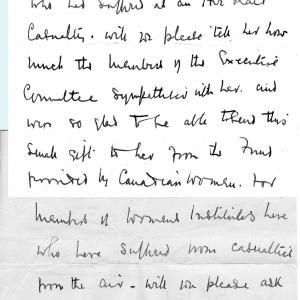 who has suffered as an Air Raid
Casualty. will you please tell her how
much the members of the Executive
Committee sympathised with her. and
were so glad to be able to send this
small gift to her from the Fund
provided by Canadian Women. for
members of Womens Institutes here
who have suffered from casualties
from the air - will you please ask